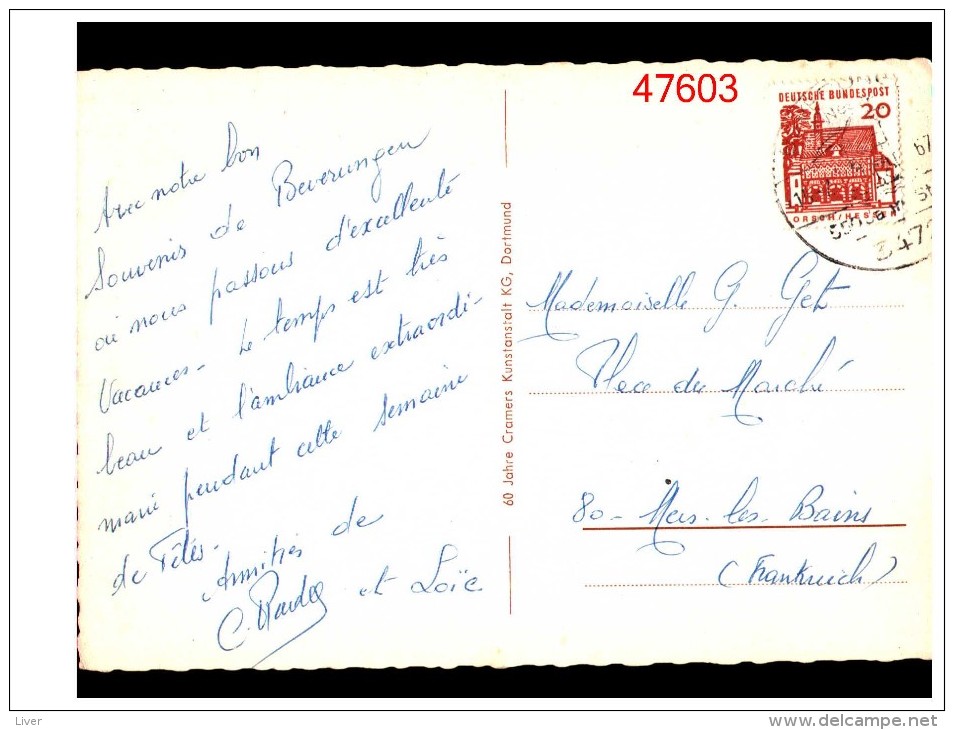 47603
DEUTSCHE BUNDESPOST
20
ORSCH/HESSEN
67
472
Avec notre bon
Souvenir de Beverungen
où nous passons d'excellente
Vacances - Le temps est très
beau et l'ambiance extraordi-
naire pendant cette semaine
de Fêtes -
Amitiés de
C. et Loïc
60 Jahre Cramers Kunstanstalt KG, Dortmund
Mademoiselle G. Get
Place du Marché
80 - Mers-les-Bains
(Frankreich)
Liver
www.delcampe.net